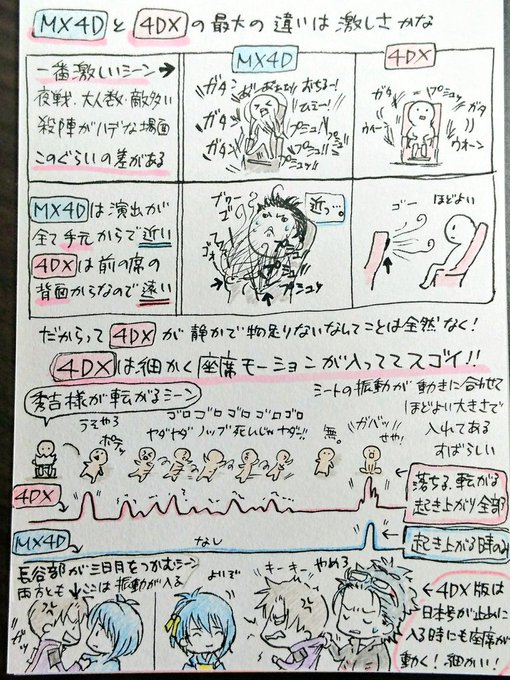 MX4Dと4DXの最大の違いは激しさかな
MX4D
4DX
一番激しいシーン→
夜戦・大人数・敵多い
殺陣がハデな場面
このぐらいの差がある
ガタン
おちるー!
ひえー!
ガタン
ガタン
プシュッ
プシュッ!!
プシュッ
ガタ
ガタ
ウィーン
ウオーン
MX4Dは演出が
全て手元からで近い
4DXは前の席の
背面からなので遠い
ブワー
ゴォ
近っ…。
プシュッ
ゴー
ほどよい
だからって4DXが静かで物足りないなんてことは全然なく!
4DXは細かく座席モーションが入っててスゴイ!!
秀吉様が転がるシーン
シートの振動が動きに合わせて
ほどよい大きさで
入れてある
すばらしい
うそやろ
ポテッ
ゴロゴロゴロゴロゴロ
ヤダヤダノッブ死んじゃヤダー!!
無。
ガバッ!
せや!
4DX
←落ちる、転がる
起き上がり全部
MX4D
なし
←起き上がる時のみ
長谷部が三日月をつかむシーン
両方ともここは振動が入る
ガッ
よいぞ
キーキー
やめろ
←4DX版は
日本号が止めに
入る時にも座席が
動く!細かい!